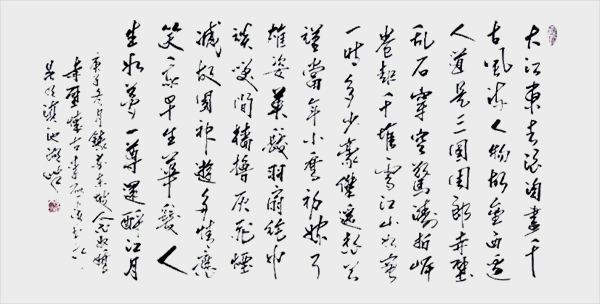 大江東去浪淘盡千
古風流人物故壘西邊
人道是三國周郎赤壁
亂石穿空驚濤拍岸
卷起千堆雪江山如畫
一時多少豪傑遙想公
瑾當年小喬初嫁了
雄姿英發羽扇綸巾
談笑間檣櫓灰飛煙
滅故國神遊多情應
笑我早生華髮人
生如夢一尊還酹江月
月錄蘇東坡念奴嬌
赤壁懷古